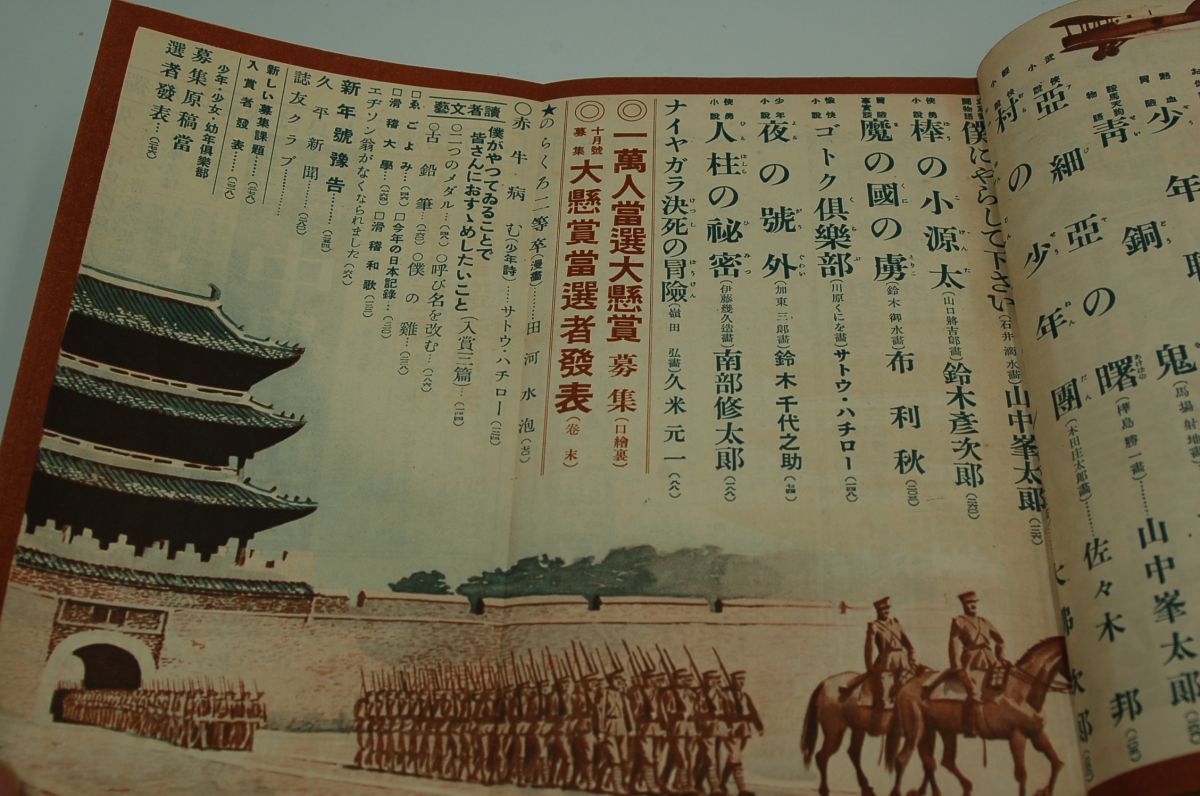 少年
鬼
青銅
亞細亞の曙
(樺島勝一畫)
山中峯太郎
村の少年團
(木田庄太郎畫)
佐々木邦
僕にやらして下さい
(石井滴水畫)
山中峯太郎
俠勇小說
棒の小源太
(山口將吉郎畫)
鈴木彥次郎
冒險事實談
魔の國の虜
(鈴木御水畫)
布利秋
愉快小說
ゴトク俱樂部
(川原くにを畫)
サトウ・ハチロー
(一四八)
少年小說
夜の號外
(加東三郎畫)
鈴木千代之助
(七四)
俠勇小說
人柱の祕密
(伊藤幾久造畫)
南部修太郎
(一八八)
ナイヤガラ決死の冒險
(嶺田弘畫)
久米元一
(八八)
◎一萬人當選大懸賞募集
(口繪裏)
◎十月號募集大懸賞當選者發表
(卷末)
★のらくろ二等卒(漫畫)……田河水泡
○赤牛病む(少年詩)……サトウ・ハチロー
讀者文藝
僕がやつてゐることで
皆さんにおすゝめしたいこと(入賞三篇)…
○二つのメダル…
○呼び名を改む…
○古鉛筆…
○僕の雞…
□ゑごよみ…
□今年の日本記錄…
□滑稽大學…
□滑稽和歌…
エヂソン翁がなくなられました
新年號豫告…
久平新聞…
誌友クラブ…
新しい募集課題…
入賞者發表…
少年・少女・幼年俱樂部
募集原稿當
選者發表…